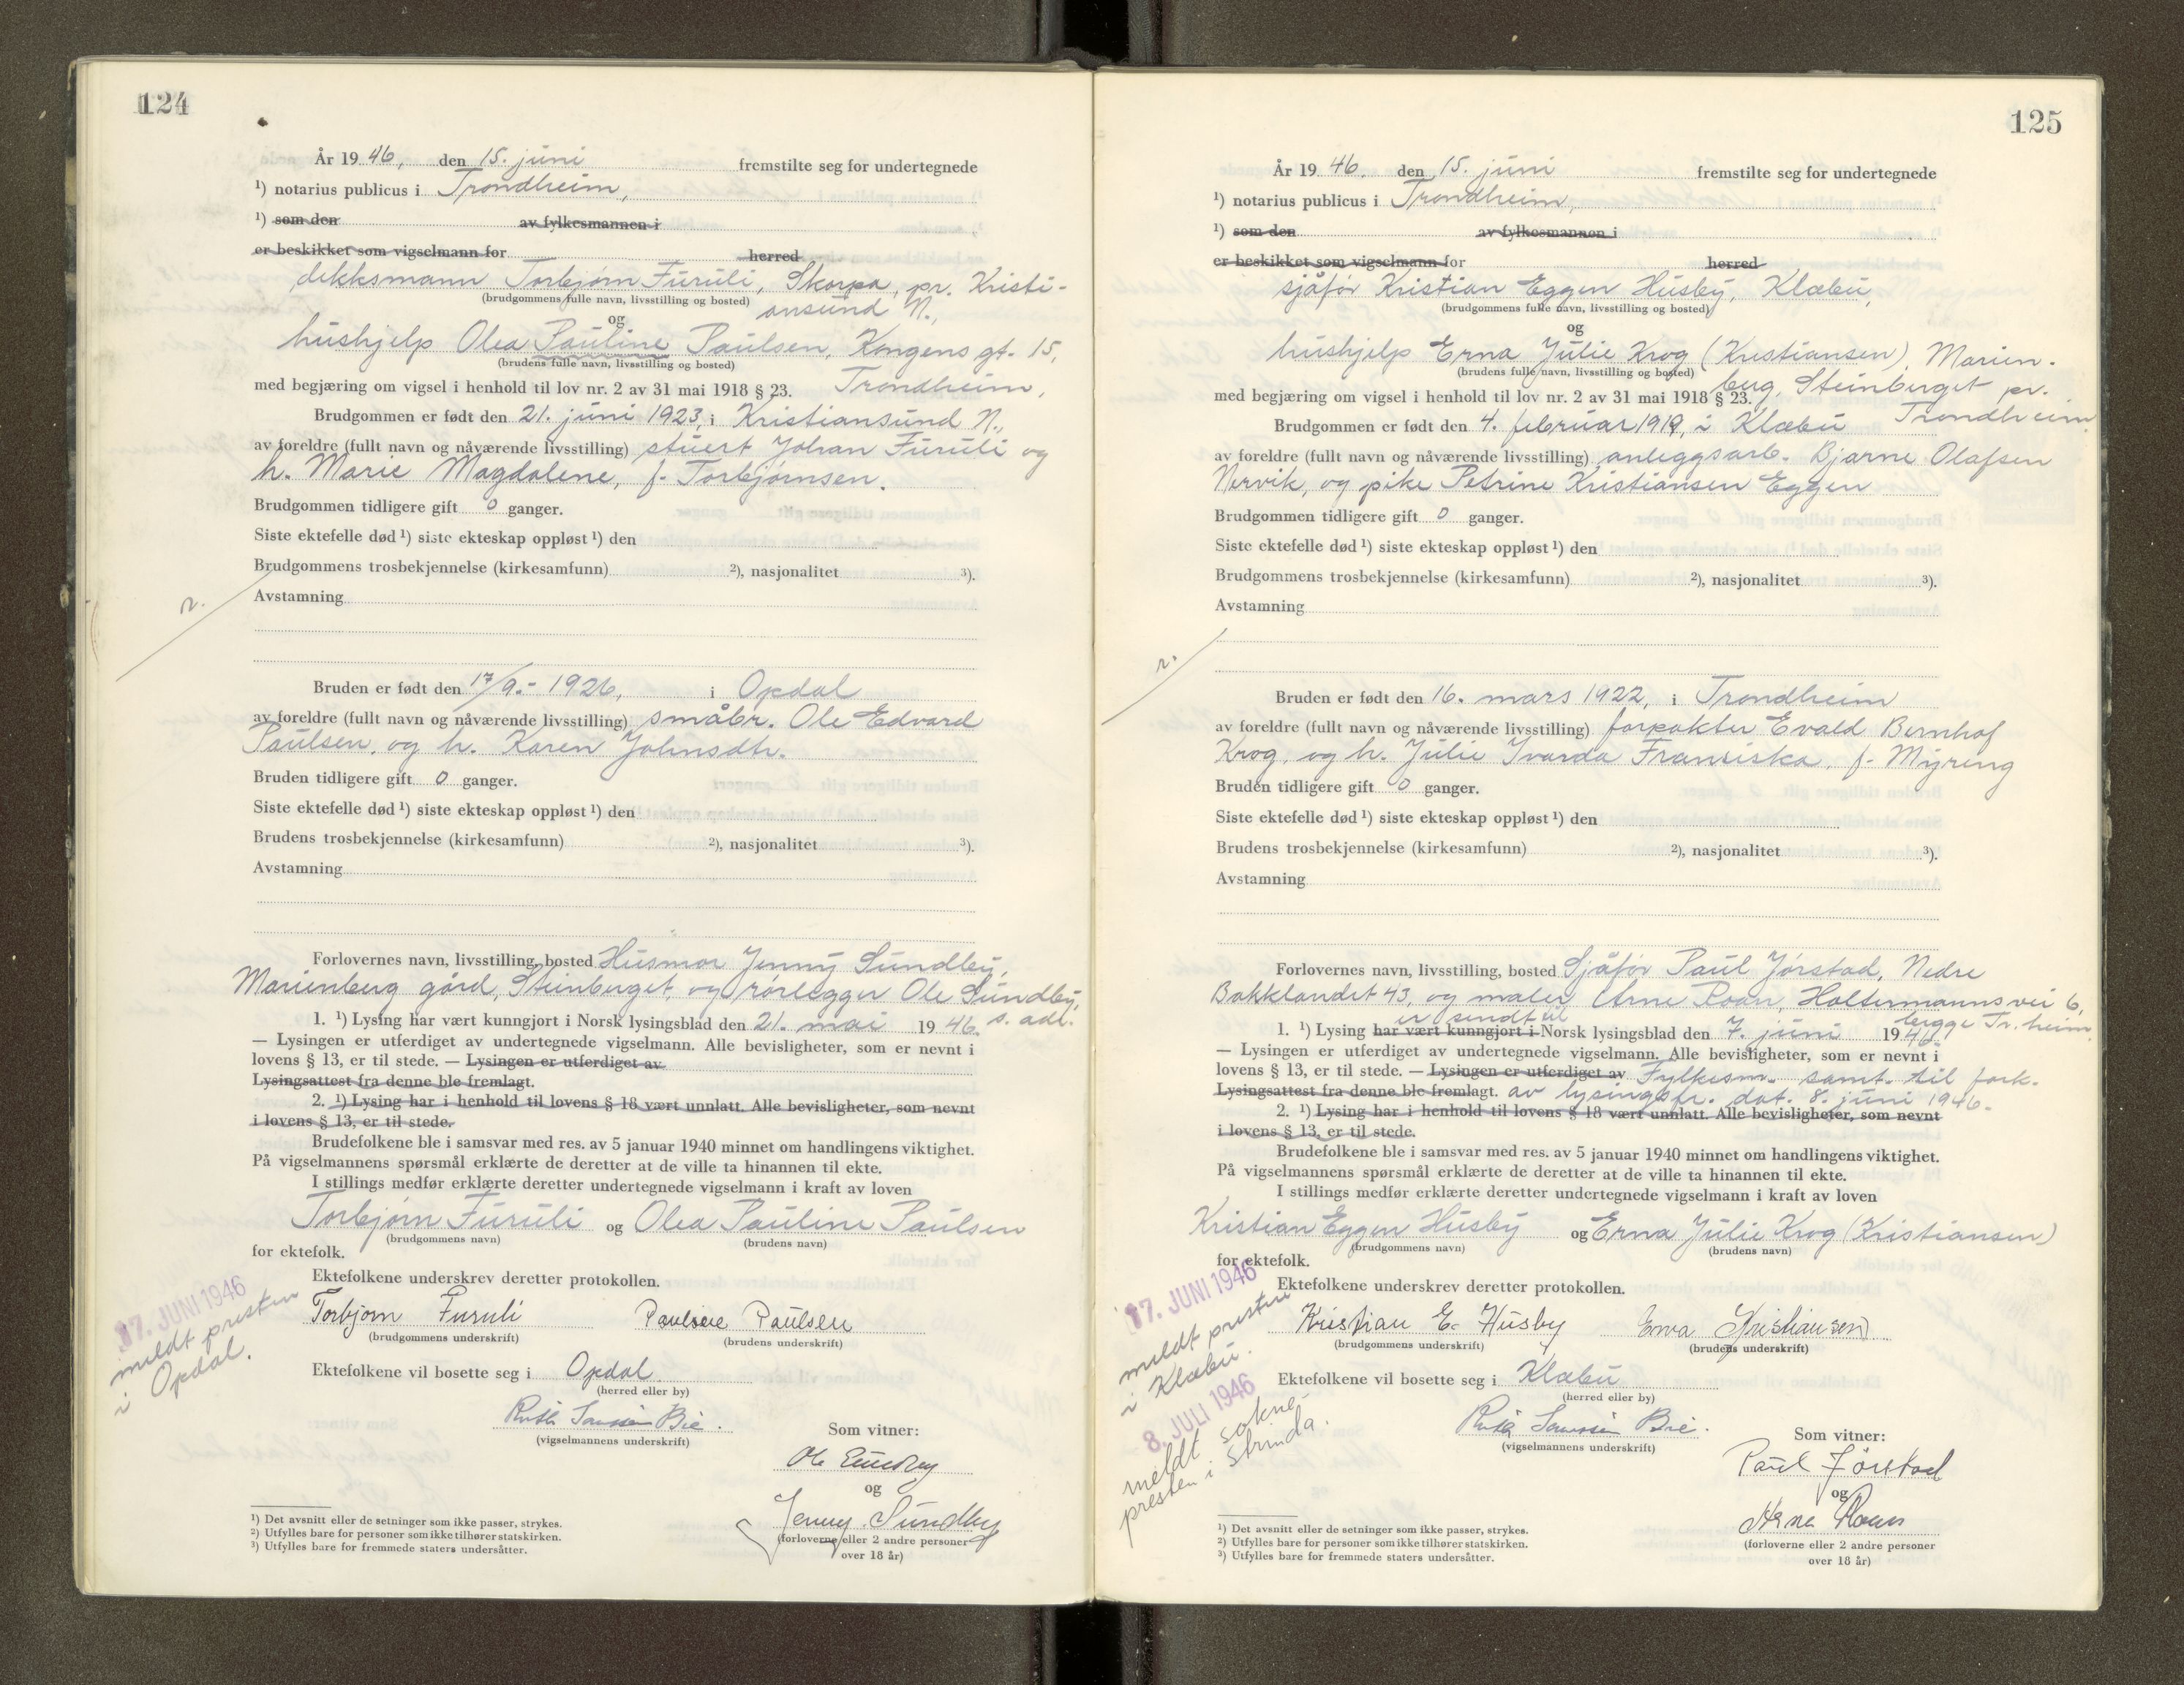 124
År 19 46, den 15. juni fremstilte seg for undertegnede
¹) notarius publicus i Trondheim,
¹) som den av fylkesmannen i
er beskikket som vigselmann for herred
dekksmann Torbjørn Furuli, Skorpa, pr. Kristi-
(brudgommens fulle navn, livsstilling og bosted) ansund N.,
og
hushjelp Olea Pauline Paulsen, Kongens gt. 15,
(brudens fulle navn, livsstilling og bosted)
med begjæring om vigsel i henhold til lov nr. 2 av 31 mai 1918 § 23. Trondheim,
Brudgommen er født den 21. juni 1923, i Kristiansund N.,
av foreldre (fullt navn og nåværende livsstilling) stuert Johan Furuli og
h. Marie Magdalene, f. Torbjørnsen.
Brudgommen tidligere gift 0 ganger.
Siste ektefelle død ¹) siste ekteskap oppløst ¹) den
Brudgommens trosbekjennelse (kirkesamfunn) ²), nasjonalitet ³).
Avstamning
Bruden er født den 17/9.- 1926, i Opdal
av foreldre (fullt navn og nåværende livsstilling) småbr. Ole Edvard
Paulsen, og h. Karen Johnsdtr.
Bruden tidligere gift 0 ganger.
Siste ektefelle død ¹) siste ekteskap oppløst ¹) den
Brudens trosbekjennelse (kirkesamfunn) ²), nasjonalitet ³).
Avstamning
Forlovernes navn, livsstilling, bosted Husmor Jenny Sundby,
Marienberg gård, Steinberget, og rørlegger Ole Sundby,
s. adr.
1. ¹) Lysing har vært kunngjort i Norsk lysingsblad den 21. mai 19 46.
— Lysingen er utferdiget av undertegnede vigselmann. Alle bevisligheter, som er nevnt i
lovens § 13, er til stede. — Lysingen er utferdiget av
Lysingsattest fra denne ble fremlagt.
2. ¹) Lysing har i henhold til lovens § 18 vært unnlatt. Alle bevisligheter, som nevnt
i lovens § 13, er til stede.
Brudefolkene ble i samsvar med res. av 5 januar 1940 minnet om handlingens viktighet.
På vigselmannens spørsmål erklærte de deretter at de ville ta hinannen til ekte.
I stillings medfør erklærte deretter undertegnede vigselmann i kraft av loven
Torbjørn Furuli og Olea Pauline Paulsen
(brudgommens navn) (brudens navn)
for ektefolk.
Ektefolkene underskrev deretter protokollen.
17. JUNI 1946
meldt presten
i Opdal.
Torbjørn Furuli Pauline Paulsen
(brudgommens underskrift) (brudens underskrift)
Ektefolkene vil bosette seg i Opdal
(herred eller by)
(vigselmannens underskrift)
Som vitner:
Ole Sundby
og
Jenny Sundby
(forloverne eller 2 andre personer
over 18 år)
¹) Det avsnitt eller de setninger som ikke passer, strykes.
²) Utfylles bare for personer som ikke tilhører statskirken.
³) Utfylles bare for fremmede staters undersåtter.
125
År 19 46. den 15. juni fremstilte seg for undertegnede
¹) notarius publicus i Trondheim,
¹) som den av fylkesmannen i
er beskikket som vigselmann for herred
sjåfør Kristian Eggen Husby, Klæbu,
(brudgommens fulle navn, livsstilling og bosted)
og
hushjelp Erna Julie Krog (Kristiansen), Marien-
(brudens fulle navn, livsstilling og bosted)
berg, Steinberget pr.
med begjæring om vigsel i henhold til lov nr. 2 av 31 mai 1918 § 23.
Trondheim.
Brudgommen er født den 4. februar 1919, i Klæbu
av foreldre (fullt navn og nåværende livsstilling) anleggsarb. Bjarne Olafsen
Nervik, og pike Petrine Kristiansen Eggen
Brudgommen tidligere gift 0 ganger.
Siste ektefelle død ¹) siste ekteskap oppløst ¹) den
Brudgommens trosbekjennelse (kirkesamfunn) ²), nasjonalitet ³).
Avstamning
Bruden er født den 16. mars 1922, i Trondheim
av foreldre (fullt navn og nåværende livsstilling) forpakter Evald Bernhof
Krog, og h. Julie Ivarda Franziska, f. Myreng
Bruden tidligere gift 0 ganger.
Siste ektefelle død ¹) siste ekteskap oppløst ¹) den
Brudens trosbekjennelse (kirkesamfunn) ²), nasjonalitet ³).
Avstamning
Forlovernes navn, livsstilling, bosted Sjåfør Paul Jørstad, Nedre
Bakklandet 43, og maler Arne Roan, Holtermanns vei 6,
er sendt til begge Tr.heim.
1. ¹) Lysing har vært kunngjort i Norsk lysingsblad den 7. juni 19 46.
— Lysingen er utferdiget av undertegnede vigselmann. Alle bevisligheter, som er nevnt i
lovens § 13, er til stede. — Lysingen er utferdiget av Fylkesm. samt. til fork.
Lysingsattest fra denne ble fremlagt. av lysingsfr. dat. 8. juni 1946.
2. ¹) Lysing har i henhold til lovens § 18 vært unnlatt. Alle bevisligheter, som nevnt
i lovens § 13, er til stede.
Brudefolkene ble i samsvar med res. av 5 januar 1940 minnet om handlingens viktighet.
På vigselmannens spørsmål erklærte de deretter at de ville ta hinannen til ekte.
I stillings medfør erklærte deretter undertegnede vigselmann i kraft av loven
Kristian Eggen Husby og Erna Julie Krog (Kristiansen)
(brudgommens navn) (brudens navn)
for ektefolk.
Ektefolkene underskrev deretter protokollen.
17. JUNI 1946
meldt presten
i Klæbu.
Kristian E. Husby Erna Kristiansen
(brudgommens underskrift) (brudens underskrift)
Ektefolkene vil bosette seg i Klæbu
(herred eller by)
8. JULI 1946
meldt sokne-
presten i Strinda.
(vigselmannens underskrift)
Som vitner:
Paul Jørstad
og
Arne Roan
(forloverne eller 2 andre personer
over 18 år)
¹) Det avsnitt eller de setninger som ikke passer, strykes.
²) Utfylles bare for personer som ikke tilhører statskirken.
³) Utfylles bare for fremmede staters undersåtter.